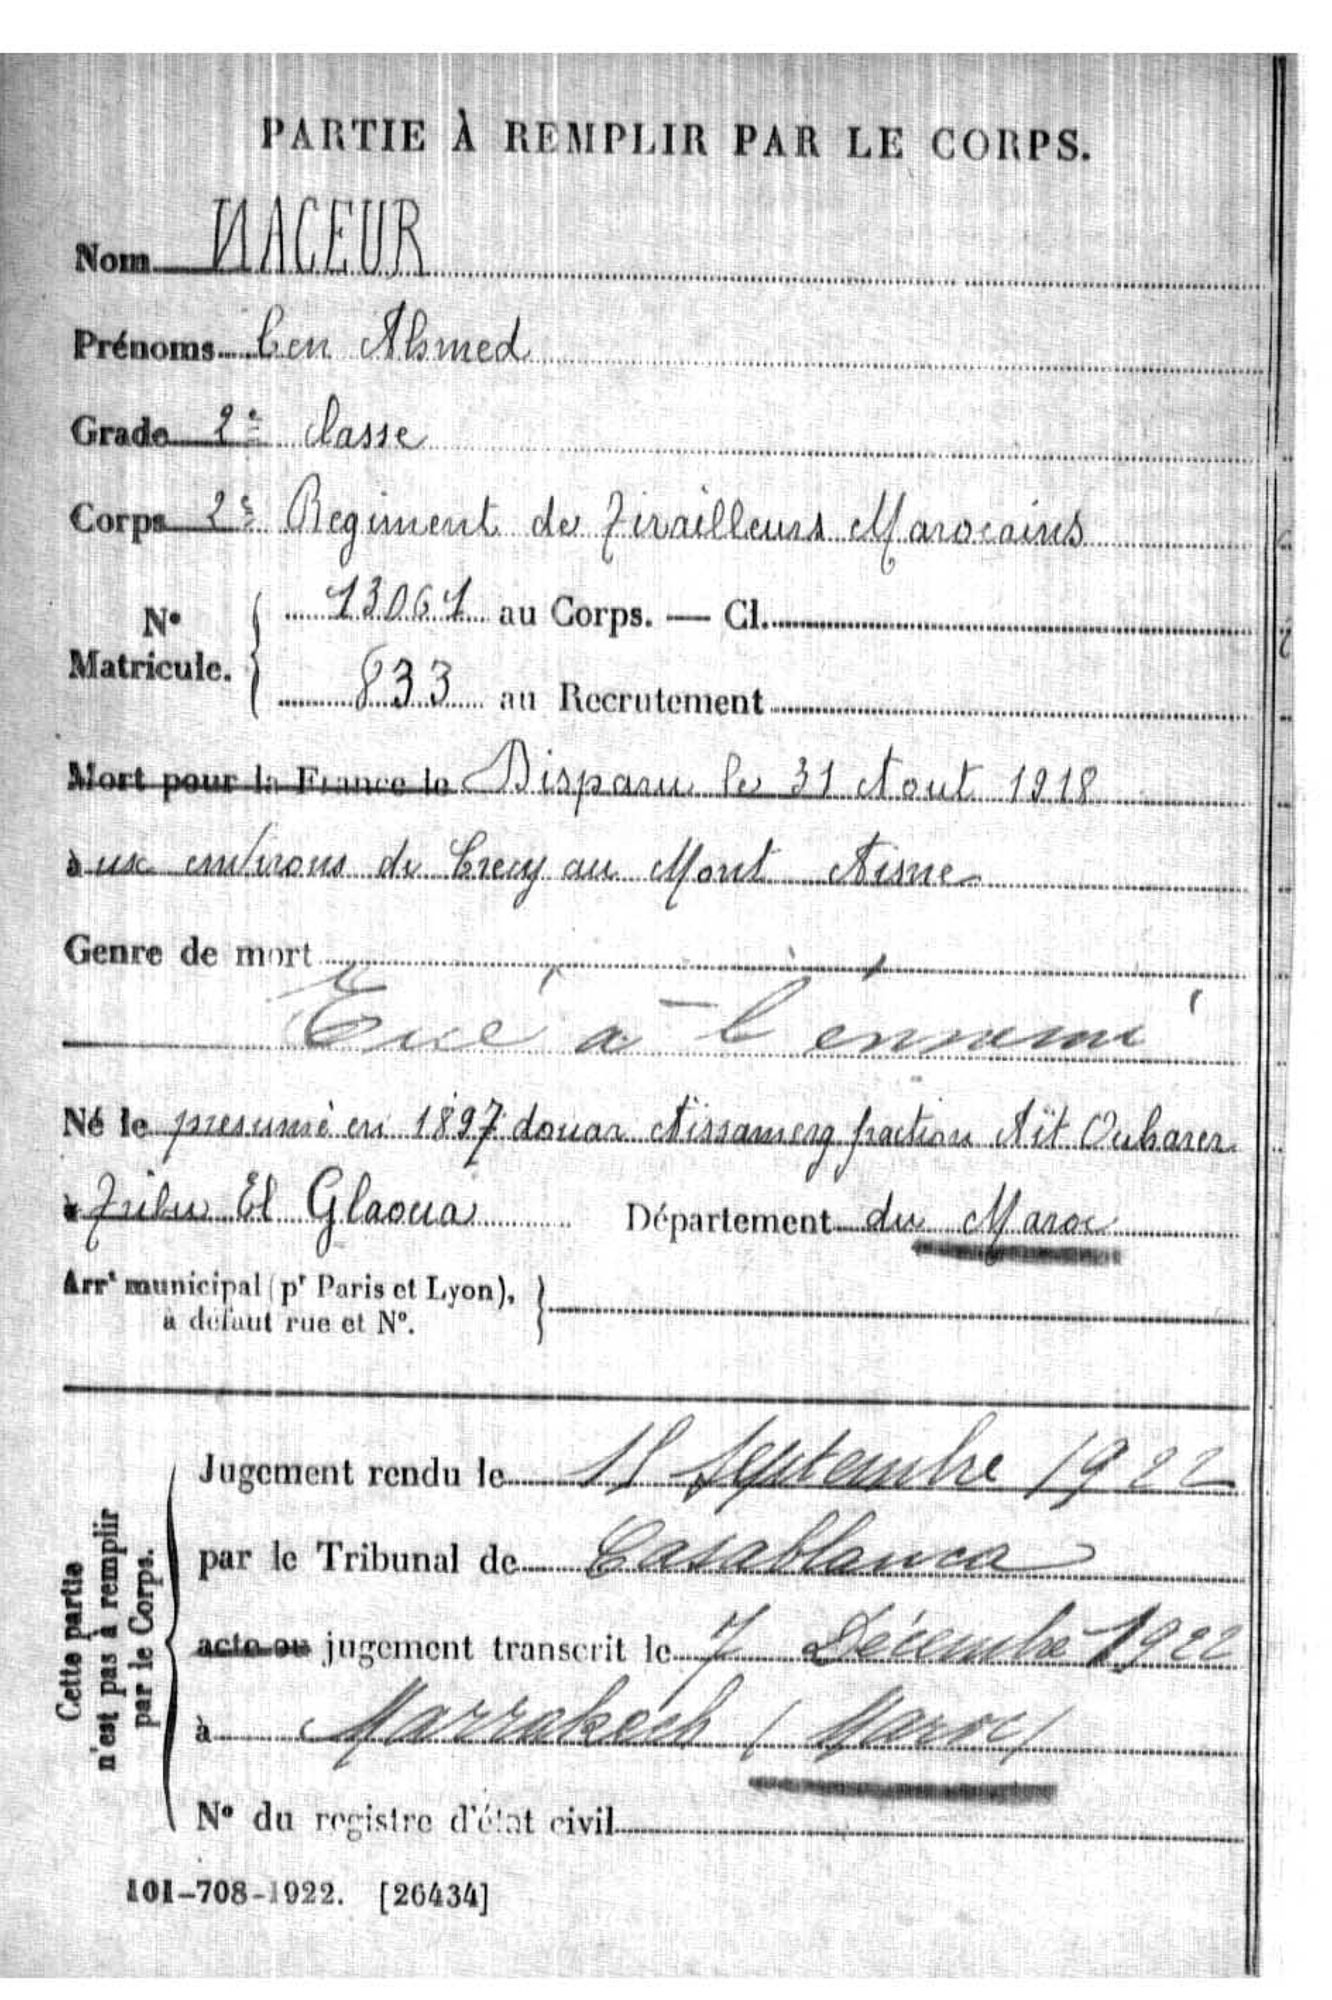 PARTIE À REMPLIR PAR LE CORPS.
Nom NACEUR
Prénoms ben Ahmed
Grade 2e classe
Corps 2e Regiment de Tirailleurs Marocains
N° Matricule. 13061 au Corps. — Cl.
833 au Recrutement
Mort pour la France le Disparu le 31 Aout 1918
aux environs de Crecy au Mont Aisne
Genre de mort
Tué à l'ennemi
Né le presumé en 1897 douar Aissamerg fraction Aït Ouharer
à Tribu El Glaoua Département du Maroc
Arrt municipal (pr Paris et Lyon),
à défaut rue et N°.
Cette partie
n'est pas à remplir
par le Corps.
Jugement rendu le Septembre 1922
par le Tribunal de Casablanca
acte ou jugement transcrit le 7 Décembre 1922
à Marrakech (Maroc)
N° du registre d'état civil
101-708-1922. [26434]